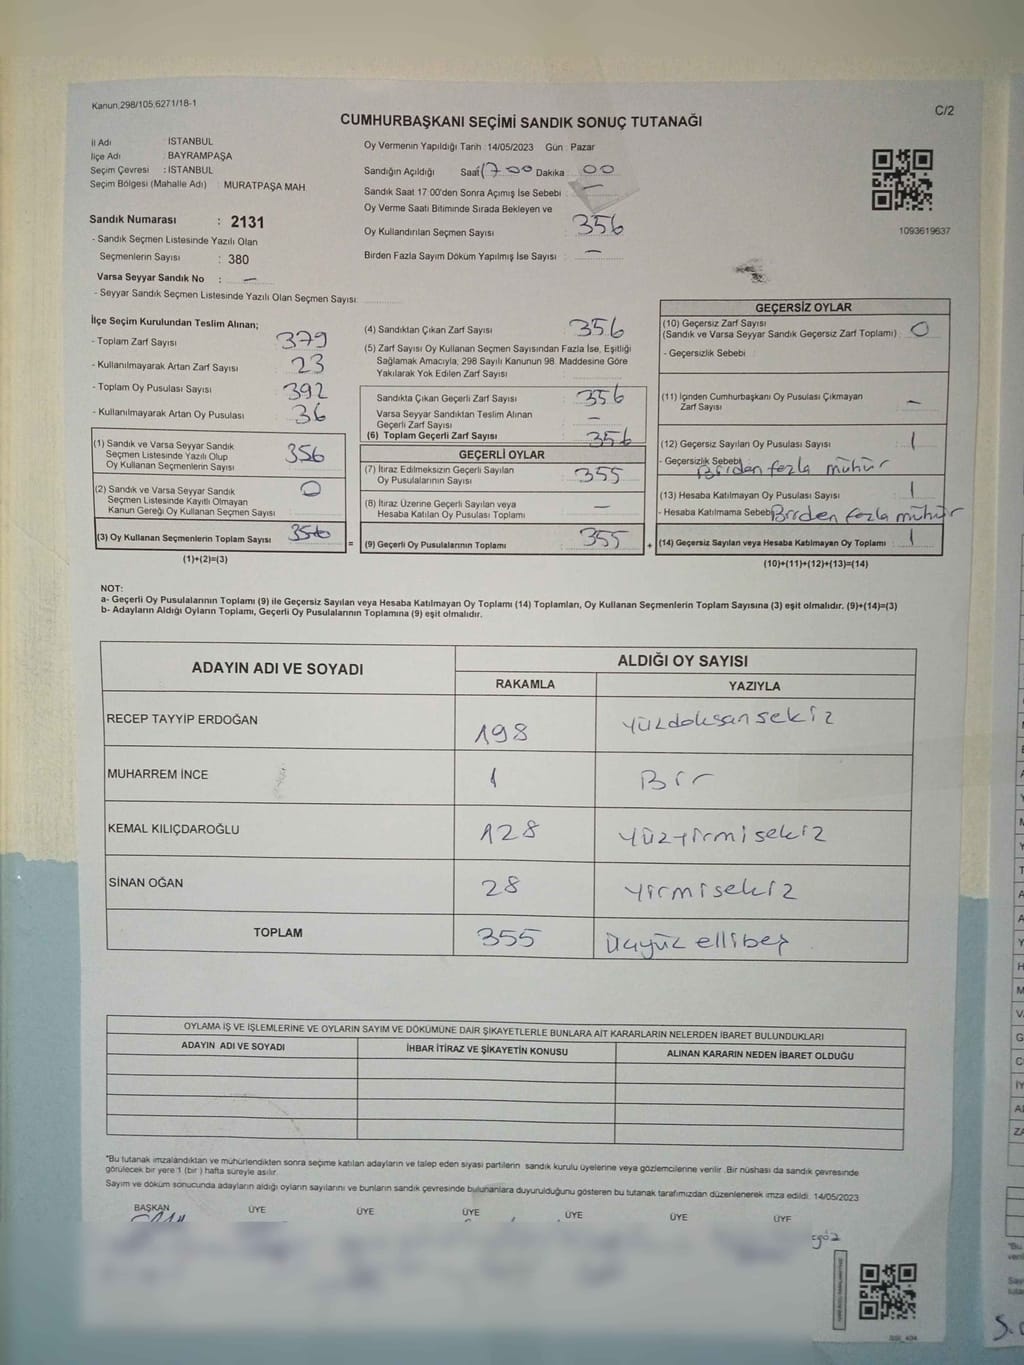 Kanun,298/105,6271/18-1
C/2
CUMHURBAŞKANI SEÇİMİ SANDIK SONUÇ TUTANAĞI
İl Adı İSTANBUL
İlçe Adı : BAYRAMPAŞA
Seçim Çevresi : İSTANBUL
Seçim Bölgesi (Mahalle Adı) : MURATPAŞA MAH.
Oy Vermenin Yapıldığı Tarih : 14/05/2023 Gün : Pazar
Sandığın Açıldığı Saat 17 00 Dakika 00
Sandık Saat 17:00'den Sonra Açımış İse Sebebi : —
Oy Verme Saati Bitiminde Sırada Bekleyen ve
Oy Kullandırılan Seçmen Sayısı 356
Birden Fazla Sayım Döküm Yapılmış İse Sayısı : —
1093619637
Sandık Numarası : 2131
- Sandık Seçmen Listesinde Yazılı Olan
Seçmenlerin Sayısı : 380
Varsa Seyyar Sandık No : —
- Seyyar Sandık Seçmen Listesinde Yazılı Olan Seçmen Sayısı:
İlçe Seçim Kurulundan Teslim Alınan;
- Toplam Zarf Sayısı 379
- Kullanılmayarak Artan Zarf Sayısı 23
- Toplam Oy Pusulası Sayısı 392
- Kullanılmayarak Artan Oy Pusulası 36
(1) Sandık ve Varsa Seyyar Sandık
Seçmen Listesinde Yazılı Olup
Oy Kullanan Seçmenlerin Sayısı 356
(2) Sandık ve Varsa Seyyar Sandık
Seçmen Listesinde Kayıtlı Olmayan
Kanun Gereği Oy Kullanan Seçmen Sayısı : 0
(3) Oy Kullanan Seçmenlerin Toplam Sayısı 356 =
(1)+(2)=(3)
(4) Sandıktan Çıkan Zarf Sayısı 356
(5) Zarf Sayısı Oy Kullanan Seçmen Sayısından Fazla İse, Eşitliği
Sağlamak Amacıyla; 298 Sayılı Kanunun 98. Maddesine Göre
Yakılarak Yok Edilen Zarf Sayısı :
Sandıkta Çıkan Geçerli Zarf Sayısı 356
Varsa Seyyar Sandıktan Teslim Alınan
Geçerli Zarf Sayısı —
(6) Toplam Geçerli Zarf Sayısı 356
GEÇERLİ OYLAR
(7) İtiraz Edilmeksizin Geçerli Sayılan
Oy Pusulalarının Sayısı 355
(8) İtiraz Üzerine Geçerli Sayılan veya
Hesaba Katılan Oy Pusulası Toplamı —
(9) Geçerli Oy Pusulalarının Toplamı 355 +
GEÇERSİZ OYLAR
(10) Geçersiz Zarf Sayısı
(Sandık ve Varsa Seyyar Sandık Geçersiz Zarf Toplamı) : 0
- Geçersizlik Sebebi
(11) İçinden Cumhurbaşkanı Oy Pusulası Çıkmayan
Zarf Sayısı —
(12) Geçersiz Sayılan Oy Pusulası Sayısı 1
- Geçersizlik Sebebi Birden fazla mühür
(13) Hesaba Katılmayan Oy Pusulası Sayısı 1
- Hesaba Katılmama Sebebi Birden fazla mühür
(14) Geçersiz Sayılan veya Hesaba Katılmayan Oy Toplamı : 1
(10)+(11)+(12)+(13)=(14)
NOT:
a- Geçerli Oy Pusulalarının Toplamı (9) ile Geçersiz Sayılan veya Hesaba Katılmayan Oy Toplamı (14) Toplamları, Oy Kullanan Seçmenlerin Toplam Sayısına (3) eşit olmalıdır. (9)+(14)=(3)
b- Adayların Aldığı Oyların Toplamı, Geçerli Oy Pusulalarının Toplamına (9) eşit olmalıdır.
ADAYIN ADI VE SOYADI ALDIĞI OY SAYISI
RAKAMLA YAZIYLA
RECEP TAYYİP ERDOĞAN 198 Yüzdoksansekiz
MUHARREM İNCE 1 Bir
KEMAL KILIÇDAROĞLU 128 Yüzyirmisekiz
SİNAN OĞAN 28 Yirmisekiz
TOPLAM 355 Üçyüz ellibeş
OYLAMA İŞ VE İŞLEMLERİNE VE OYLARIN SAYIM VE DÖKÜMÜNE DAİR ŞİKAYETLERLE BUNLARA AİT KARARLARIN NELERDEN İBARET BULUNDUKLARI
ADAYIN ADI VE SOYADI İHBAR İTİRAZ VE ŞİKAYETİN KONUSU ALINAN KARARIN NEDEN İBARET OLDUĞU
"Bu tutanak imzalandıktan ve mühürlendikten sonra seçime katılan adayların ve talep eden siyasi partilerin sandık kurulu üyelerine veya gözlemcilerine verilir .Bir nüshası da sandık çevresinde
görülecek bir yere 1 (bir ) hafta süreyle asılır.
Sayım ve döküm sonucunda adayların aldığı oyların sayılarını ve bunların sandık çevresinde bulunanlara duyurulduğunu gösteren bu tutanak tarafımızdan düzenlenerek imza edildi. 14/05/2023
BAŞKAN ÜYE ÜYE ÜYE ÜYE ÜYE ÜYE